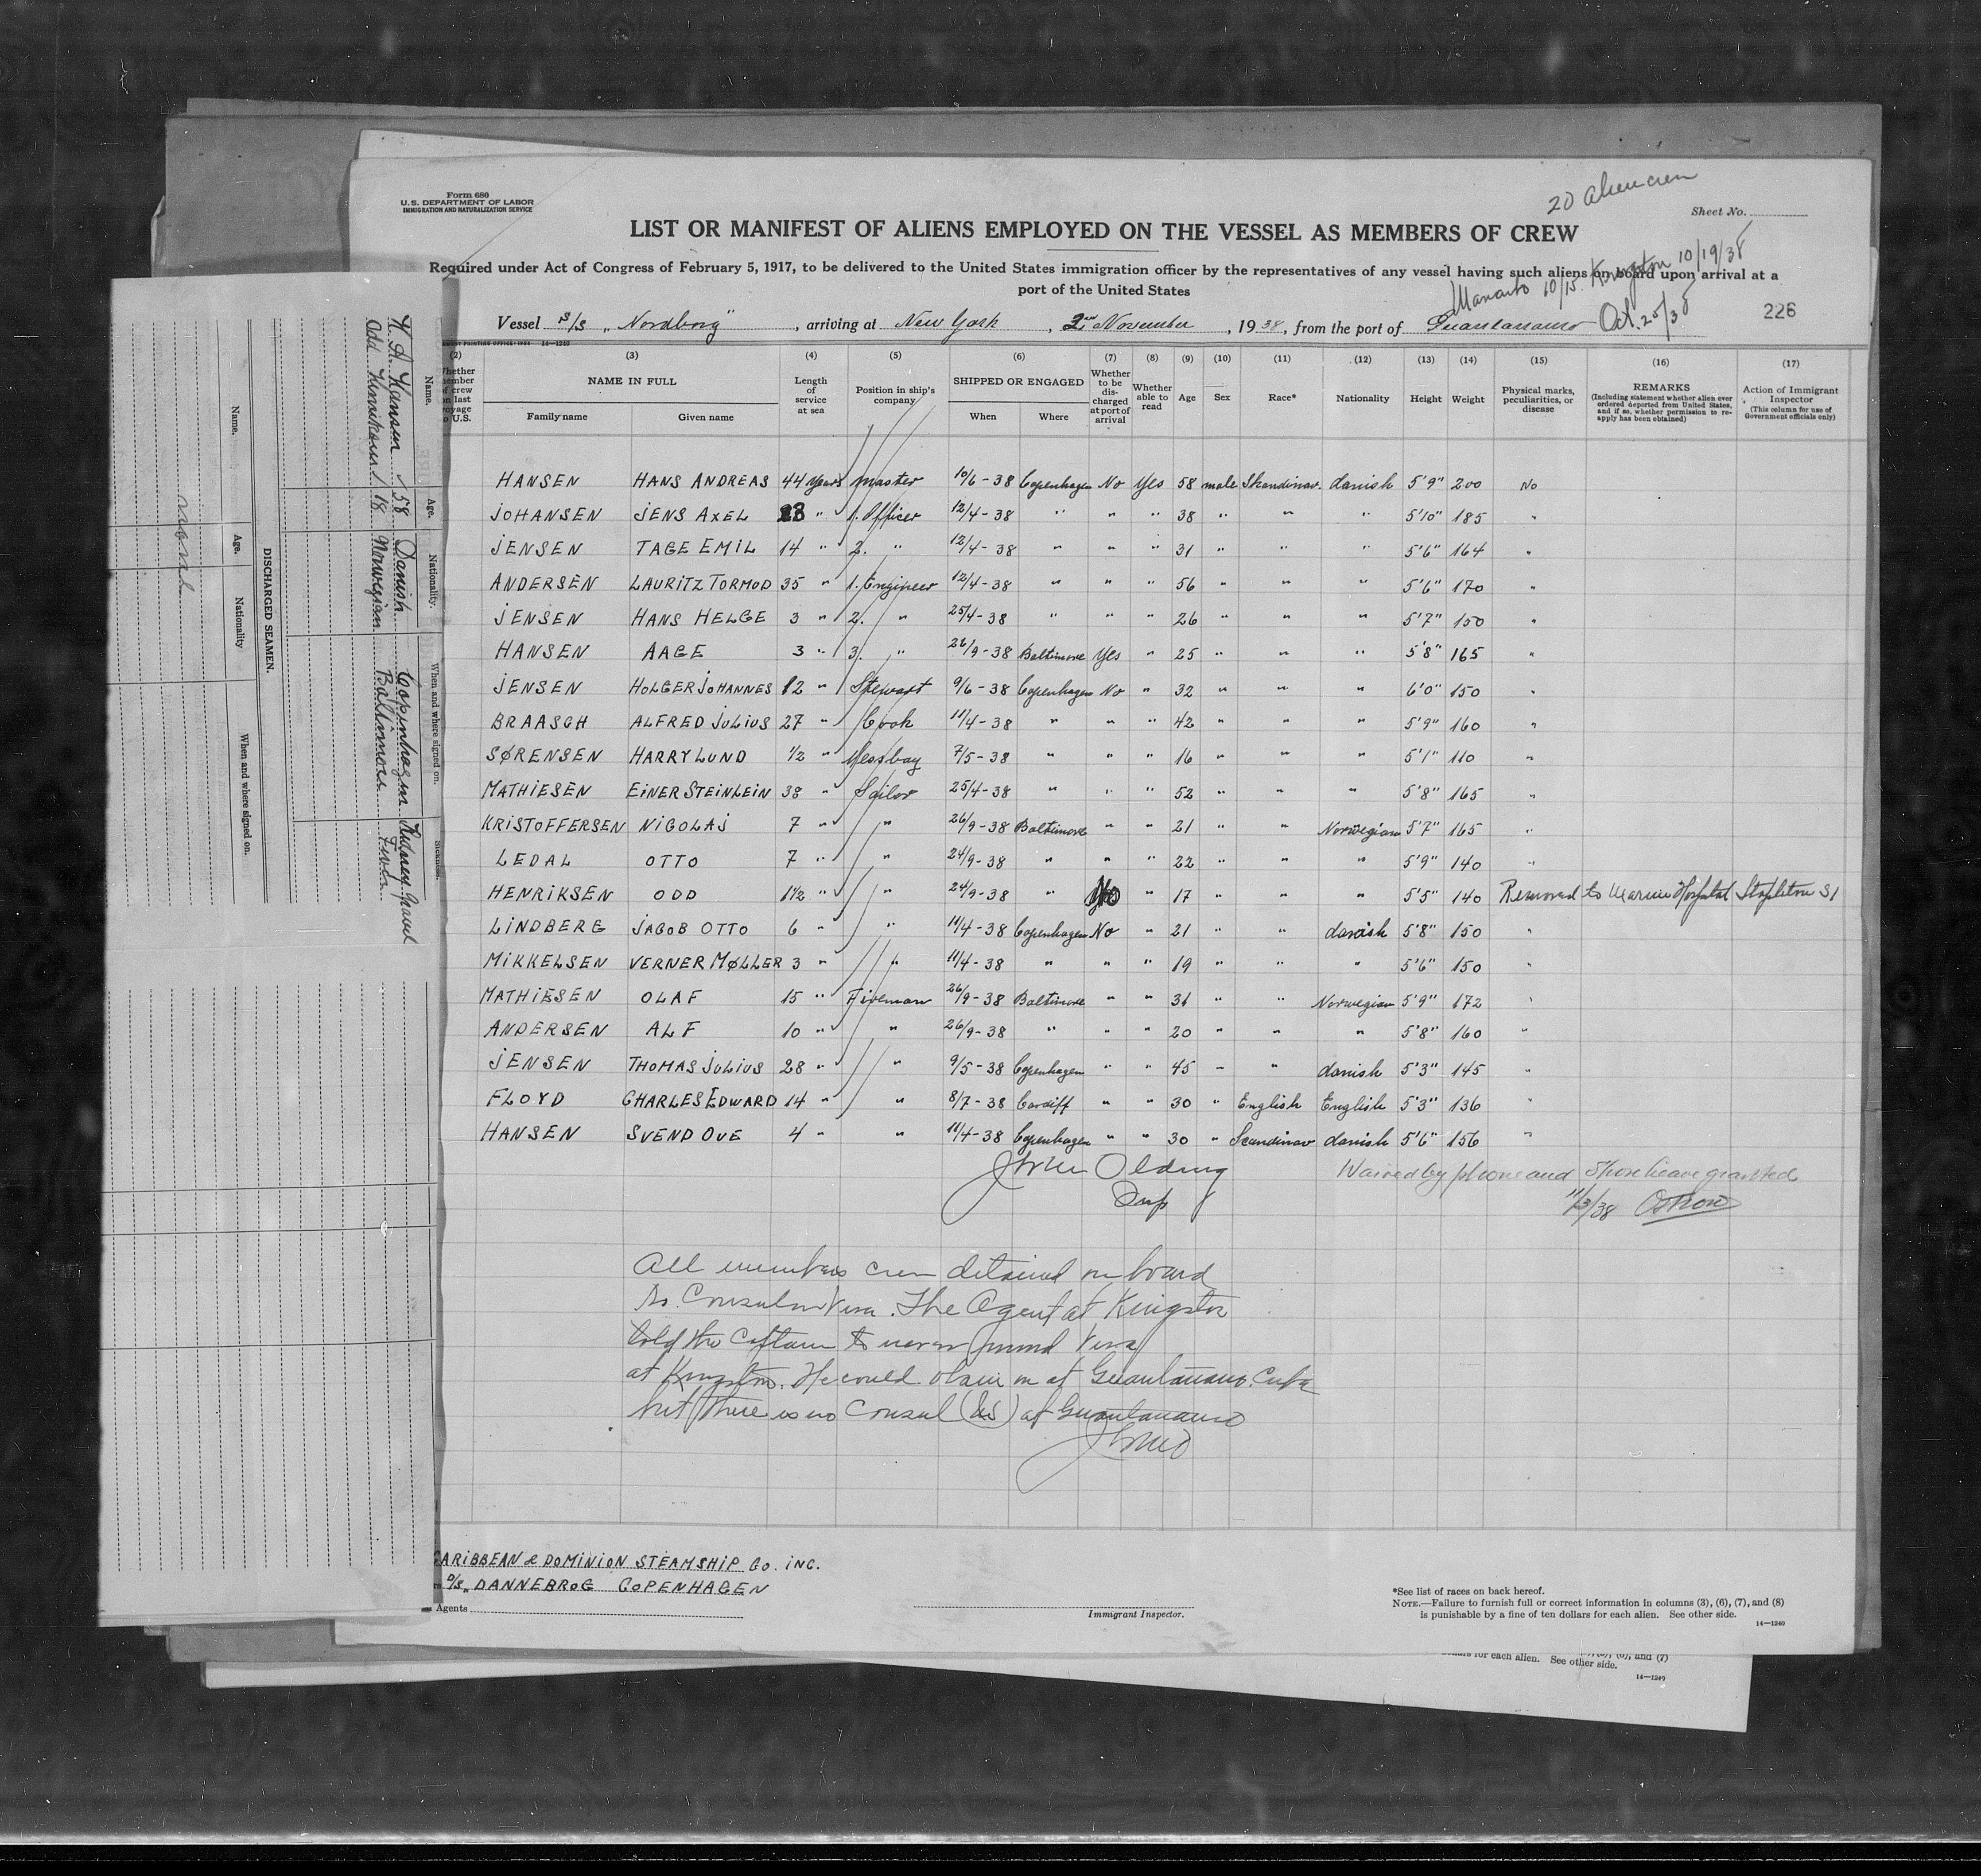 20 alien crew
Form 680
U.S. DEPARTMENT OF LABOR
IMMIGRATION AND NATURALIZATION SERVICE
Sheet No.
LIST OR MANIFEST OF ALIENS EMPLOYED ON THE VESSEL AS MEMBERS OF CREW
Required under Act of Congress of February 5, 1917, to be delivered to the United States immigration officer by the representatives of any vessel having such aliens on board upon arrival at a
port of the United States
10/15 Kingston 10/19/38
Vessel S/S „Nordborg" , arriving at New York , 2nd November , 19 38, from the port of Guantanamo Oct. 25/38
226
(2) (3) (4) (5) (6) (7) (8) (9) (10) (11) (12) (13) (14) (15) (16) (17)
NAME IN FULL
Family name Given name
Length of service at sea
Position in ship's company
SHIPPED OR ENGAGED
When Where
Whether to be discharged at port of arrival
Whether able to read
Age Sex Race* Nationality Height Weight
Physical marks, peculiarities, or disease
REMARKS
(Including statement whether alien ever ordered deported from United States, and if so, whether permission to reapply has been obtained)
Action of Immigrant Inspector
(This column for use of Government officials only)
HANSEN HANS ANDREAS 44 years master 10/6-38 Copenhagen No Yes 58 male Skandinav. danish 5'9" 200 No
JOHANSEN JENS AXEL 23 " 1. Officer 12/4-38 " " " 38 " " " 5'10" 185 "
JENSEN TAGE EMIL 14 " 2. " 12/4-38 " " " 31 " " " 5'6" 164 "
ANDERSEN LAURITZ TORMOD 35 " 1. Engineer 12/4-38 " " " 56 " " " 5'6" 170 "
JENSEN HANS HELGE 3 " 2. " 25/4-38 " " " 26 " " " 5'7" 150 "
HANSEN AAGE 3 " 3. " 26/9-38 Baltimore Yes " 25 " " " 5'8" 165 "
JENSEN HOLGER JOHANNES 12 " Stewart 9/6-38 Copenhagen No " 32 " " " 6'0" 150 "
BRAASCH ALFRED JULIUS 27 " Cook 11/4-38 " " " 42 " " " 5'9" 160 "
SØRENSEN HARRY LUND 1/2 " Messboy 7/5-38 " " " 16 " " " 5'1" 110 "
MATHIESEN EINER STEINLEIN 38 " Sailor 25/4-38 " " " 52 " " " 5'8" 165 "
KRISTOFFERSEN NIGOLAJ 7 " " 26/9-38 Baltimore " " 21 " " Norwegian 5'7" 165 "
LEDAL OTTO 7 " " 24/9-38 " " " 22 " " " 5'9" 140 "
HENRIKSEN ODD 1 1/2 " " 24/9-38 " No " 17 " " " 5'5" 140 Removed to Marine Hospital Stapleton SI
LINDBERG JACOB OTTO 6 " " 11/4-38 Copenhagen No " 21 " " danish 5'8" 150 "
MIKKELSEN VERNER MØLLER 3 " " 11/4-38 " " " 19 " " " 5'6" 150 "
MATHIESEN OLAF 15 " Fireman 26/9-38 Baltimore " " 31 " " Norwegian 5'9" 172 "
ANDERSEN ALF 10 " " 26/9-38 " " " 20 " " " 5'8" 160 "
JENSEN THOMAS JULIUS 28 " " 9/5-38 Copenhagen " " 45 " " danish 5'3" 145 "
FLOYD CHARLES EDWARD 14 " " 8/7-38 Cardiff " " 30 " English English 5'3" 136 "
HANSEN SVEND OVE 4 " " 11/4-38 Copenhagen " " 30 " Scandinav danish 5'6" 156 "
Olding
Insp
Waived by phone and Shore leave granted
11/3/38
All members crew detained on board
No. Consular visa. The Agent at Kingston
told the Captain to never mind visa
at Kingston. He could obtain on at Guantanamo. Cuba
but there is no Consul (US) at Guantanamo
CARIBBEAN & DOMINION STEAMSHIP CO. INC.
D/S „ DANNEBROG COPENHAGEN
Agents
Immigrant Inspector.
*See list of races on back hereof.
NOTE.—Failure to furnish full or correct information in columns (3), (6), (7), and (8)
is punishable by a fine of ten dollars for each alien. See other side.
14—1240
for each alien. See other side.
14—1240
Name. Age. Nationality. When and where signed on. Sickness.
H. A. Hansen 58 Danish Copenhagen Kidney gravel
Odd Henriksen 18 Norwegian Baltimore Fever
DISCHARGED SEAMEN.
Name. Age. Nationality When and where signed on.